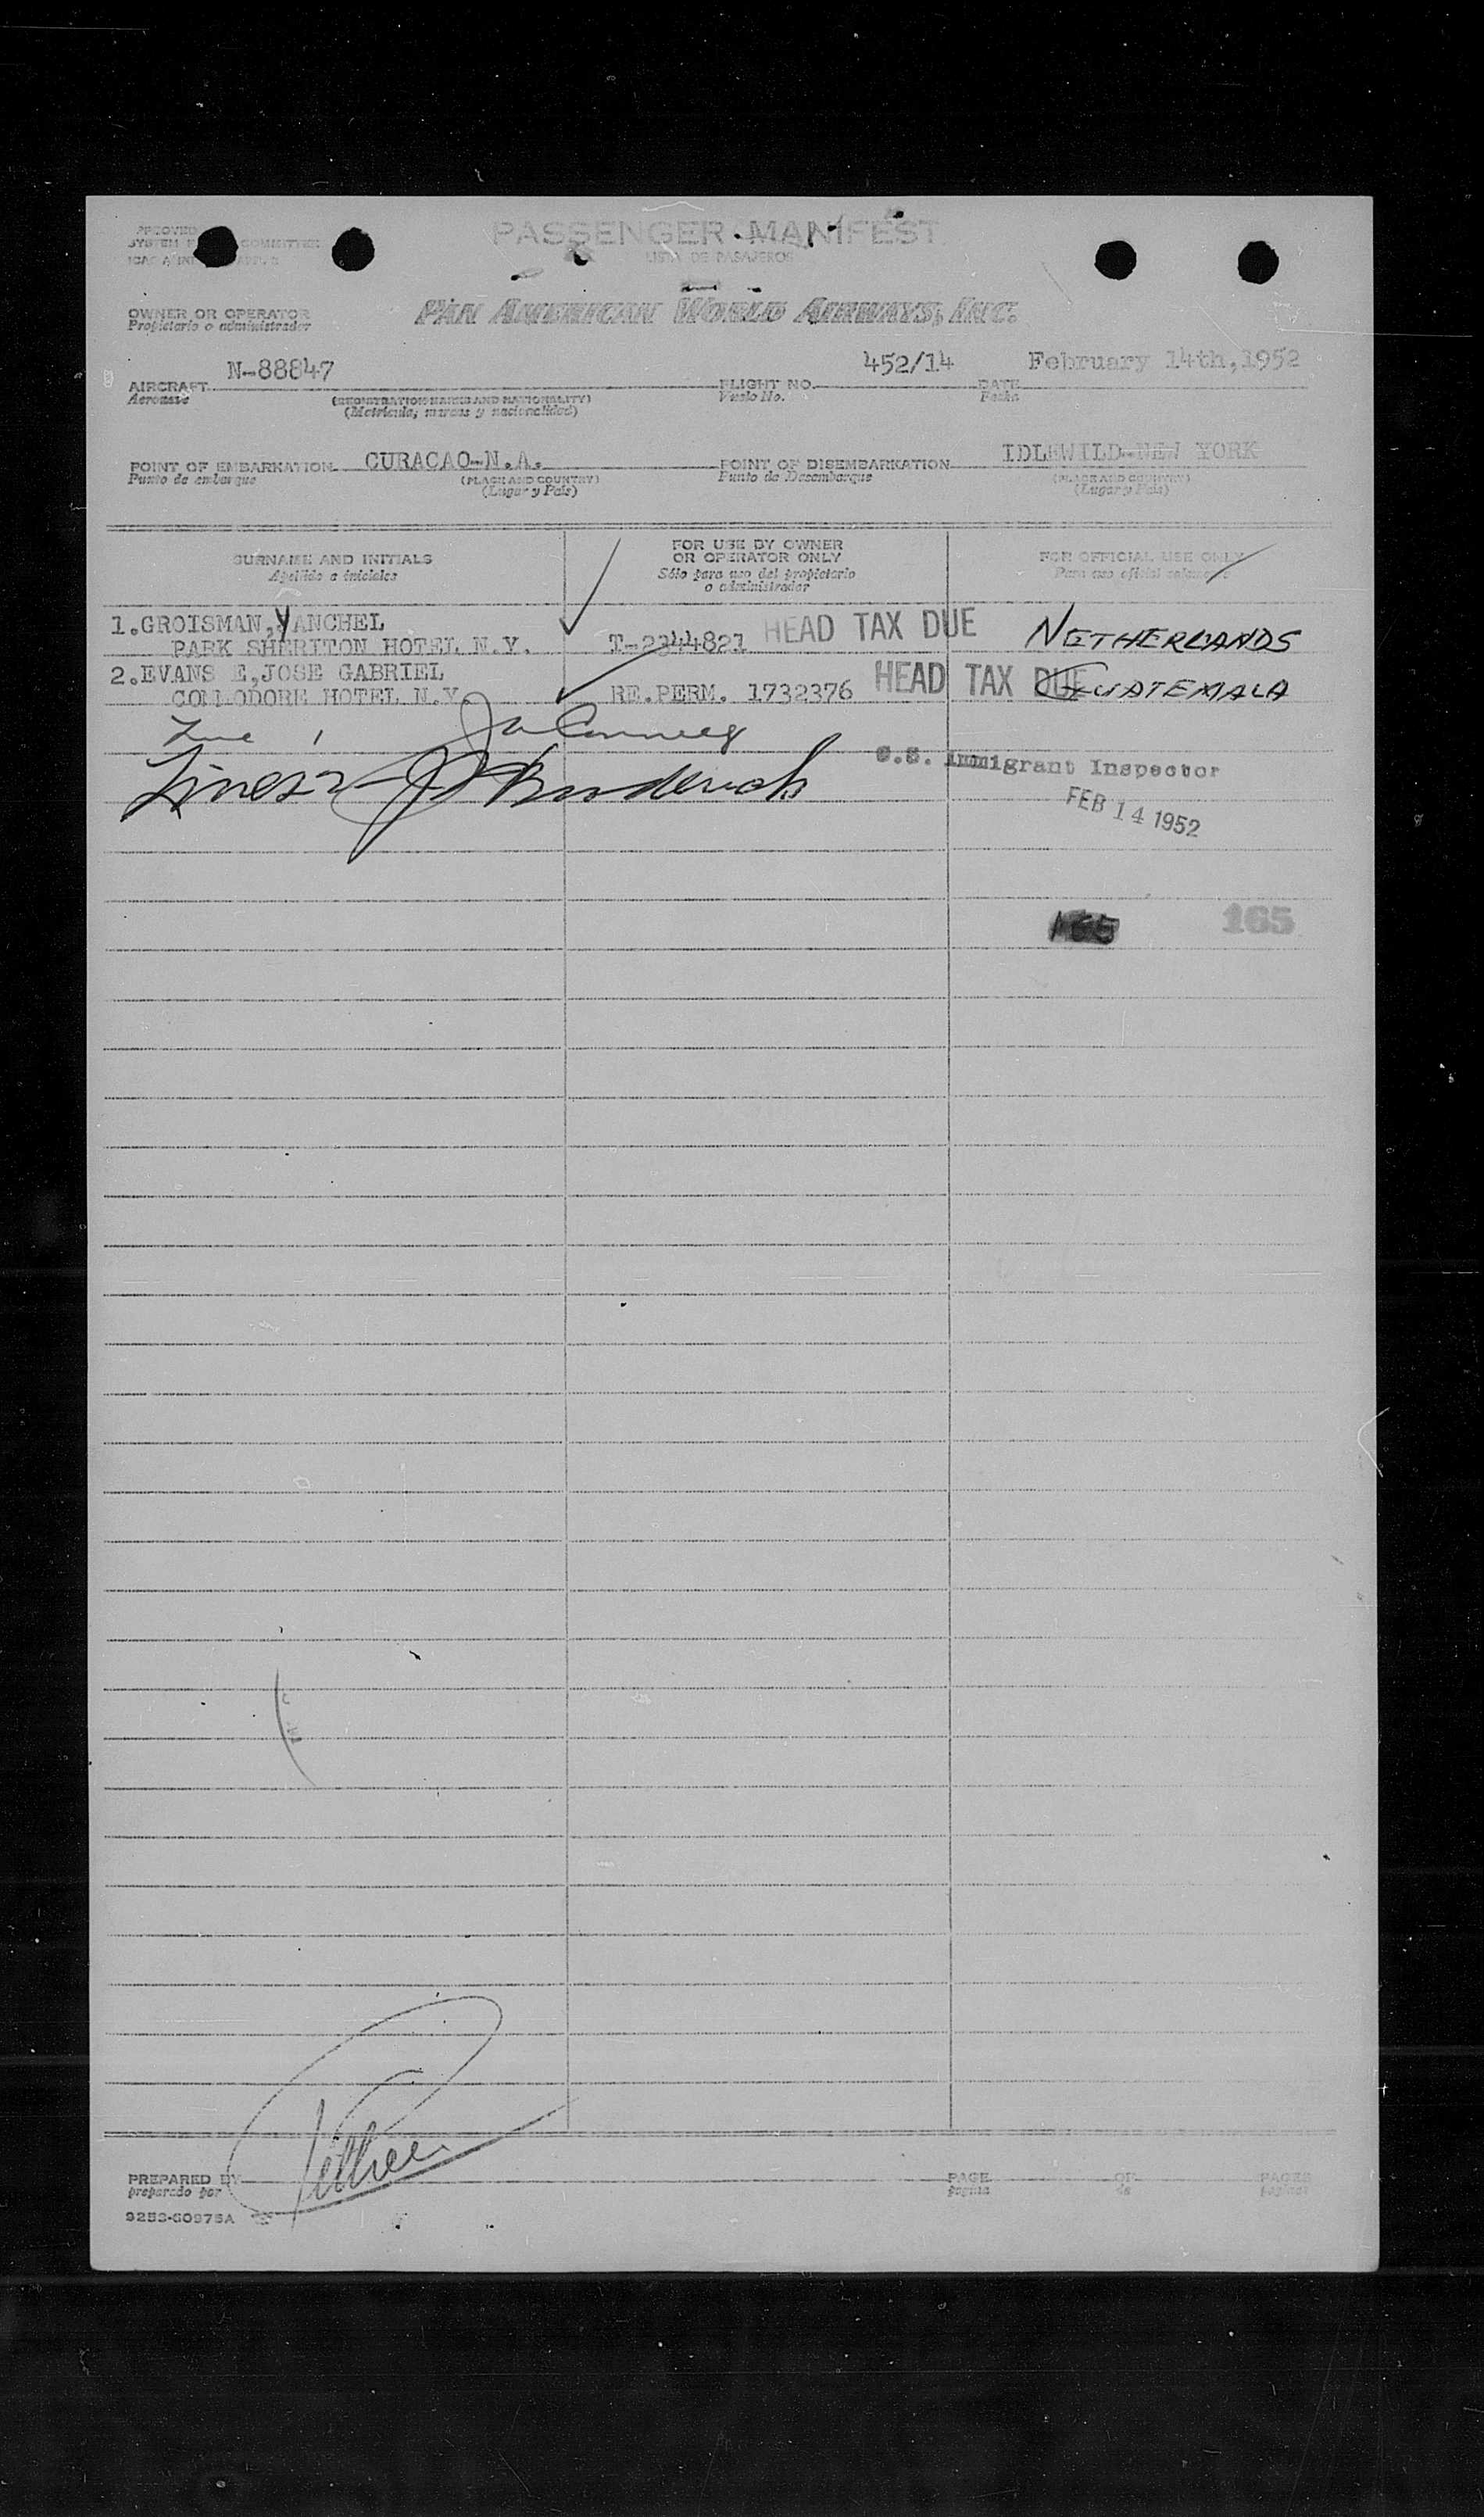 APPROVED
SYSTEM COMMITTEE
PASSENGER MANIFEST
LISTA DE PASAJEROS
OWNER OR OPERATOR
Propietario o administrador
PAN AMERICAN WORLD AIRWAYS, INC.
AIRCRAFT N-88847 FLIGHT NO. 452/14 DATE February 14th,1952
Aeronave Vuelo No. Fecha
(REGISTRATION MARKS AND NATIONALITY)
(Matrícula, marcas y nacionalidad)
POINT OF EMBARKATION CURACAO-N.A. POINT OF DISEMBARKATION IDLEWILD-NEW YORK
Punto de embarque (PLACE AND COUNTRY) Punto de Desembarque (PLACE AND COUNTRY)
(Lugar y País) (Lugar y País)
SURNAME AND INITIALS
Apellido e iniciales
FOR USE BY OWNER
OR OPERATOR ONLY
Sólo para uso del propietario
o administrador
FOR OFFICIAL USE ONLY
Para uso oficial solamente
1.GROISMAN,YANCHEL HEAD TAX DUE NETHERLANDS
PARK SHERITON HOTEL N.Y. T-2344821
2.EVANS E,JOSE GABRIEL HEAD TAX DUE GUATEMALA
COMMODORE HOTEL N.Y. RE.PERM. 1732376
Line 1
Line 2 Broderick
U.S. Immigrant Inspector
FEB 14 1952
165 165
PREPARED BY PAGE OF PAGES
preparado por pagina de paginas
9253-60975A